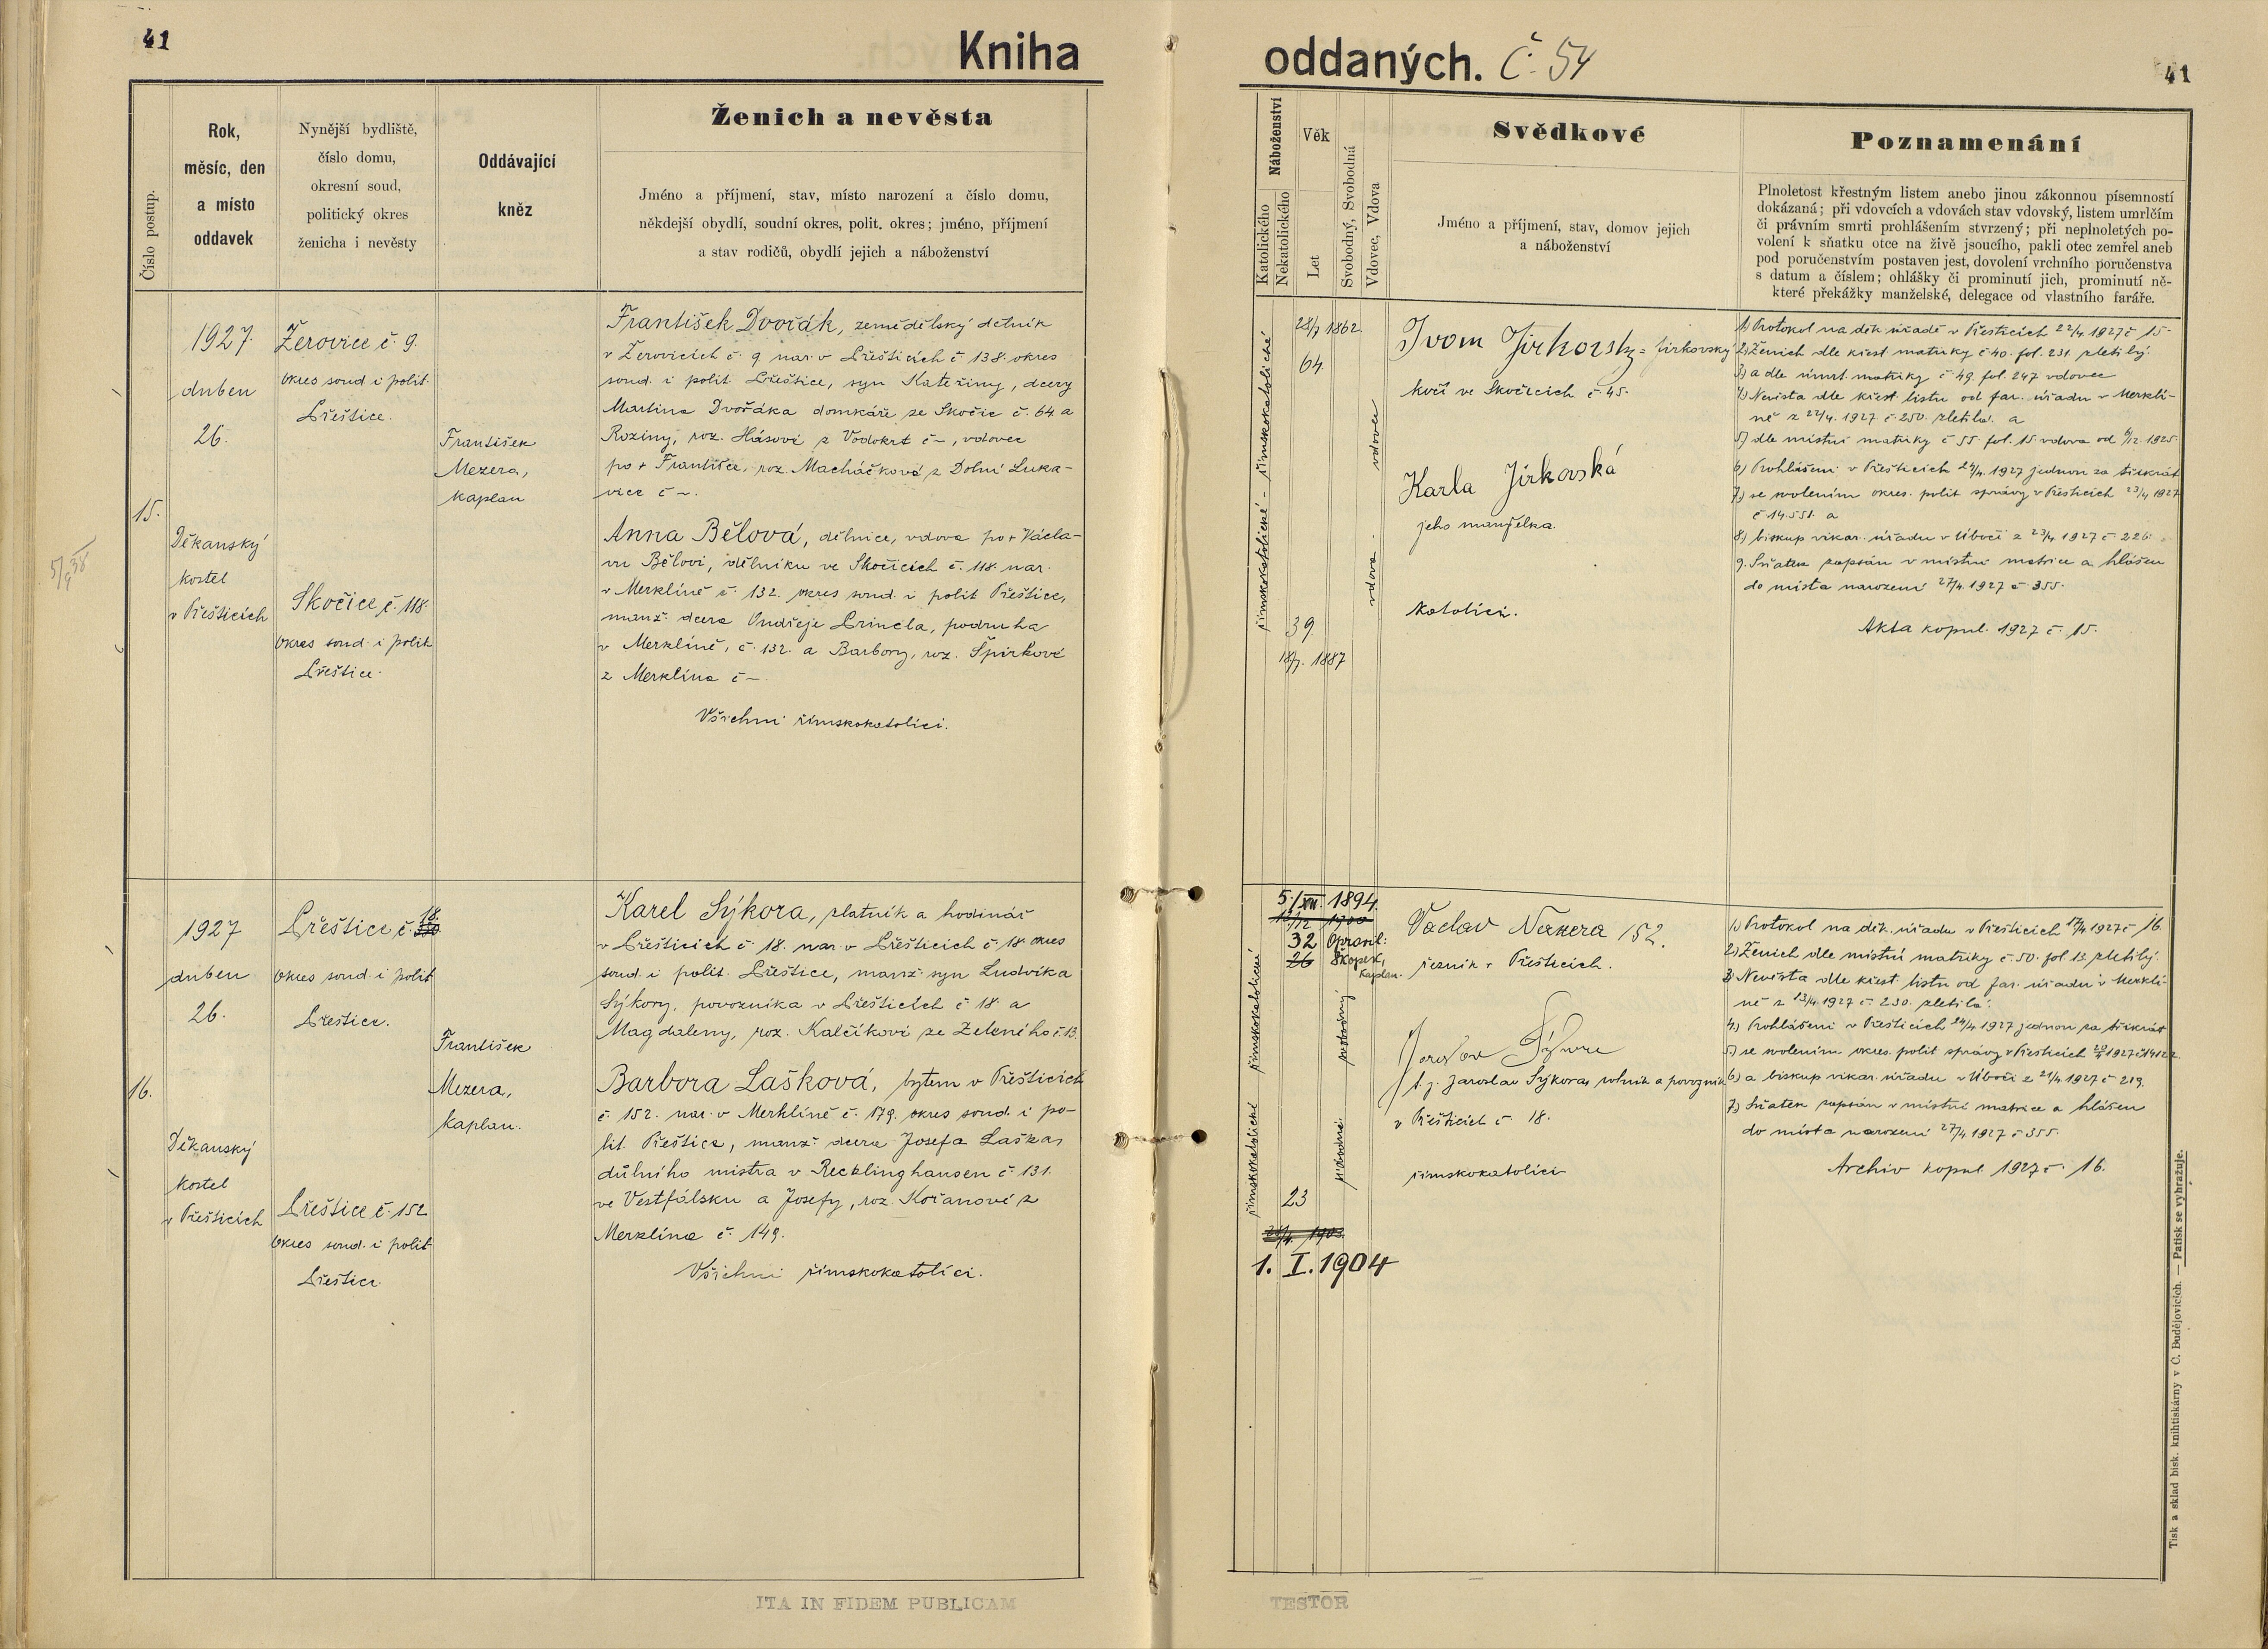 41
Kniha
oddaných. Č. 54
41
Číslo postup.
Rok,
měsíc, den
a místo
oddavek
Nynější bydliště,
číslo domu,
okresní soud,
politický okres
ženicha i nevěsty
Oddávající
kněz
Ženich a nevěsta
Jméno a příjmení, stav, místo narození a číslo domu,
někdejší obydlí, soudní okres, polit. okres; jméno, příjmení
a stav rodičů, obydlí jejich a náboženství
Náboženství
Katolického
Nekatolického
Věk
Let
Svobodný, Svobodná
Vdovec, Vdova
Svědkové
Jméno a příjmení, stav, domov jejich
a náboženství
Poznamenání
Plnoletost křestným listem anebo jinou zákonnou písemností
dokázaná; při vdovcích a vdovách stav vdovský, listem umrlčím
či právním smrti prohlášením stvrzený; při neplnoletých po-
volení k sňatku otce na živě jsoucího, pakli otec zemřel aneb
pod poručenstvím postaven jest, dovolení vrchního poručenstva
s datum a číslem; ohlášky či prominutí jich, prominutí ně-
které překážky manželské, delegace od vlastního faráře.
15.
1927.
duben
26.
Děkanský
kostel
v Přešticích
Žerovice č. 9.
okres soud. i polit.
Přeštice.
Skočice č. 118.
okres soud. i polit
Přeštice.
František
Mezera,
kaplan
František Dvořák, zemědělský dělník
v Žerovicích č. 9 nar. v Přešticích č. 138. okres
soud. i polit. Přeštice, syn Kateřiny, dcery
Martina Dvořáka domkáře ze Skočic č. 64. a
Roziny, roz. Hásové z Vodokrt č –, vdovec
po + Františce, roz. Macháčkové z Dolní Luka-
vice č –.
Anna Bělová, dělnice, vdova po + Václa-
vu Bělovi, dělníku ve Skočicích č. 118. nar.
v Merklíně č. 132. okres soud. i polit Přeštice,
manž. dcera Ondřeje Princla, podruha
v Merklíně, č. 132. a Barbory, roz. Špirkové
z Merklína č –
Všichni římskokatolíci.
římskokatolické – římskokatolické
28/7 1862.
64.
39.
18/7. 1887
vdova – vdovec
Ivom Jirkovsky = Jirkovský
kočí ve Skočicích č. 45.
Karla Jirkovská
jeho manželka.
Katolíci.
1) Protokol na děk. úřadě v Přešticích 22/4 1927 č 15.
2) Ženich dle křest. matriky č 40. fol. 231. zletilý.
3) a dle úmrt. matriky č 49. fol. 247 vdovec
4) Nevěsta dle křest. listu od far. úřadu v Merklí-
ně z 22/4. 1927 č. 250. zletilá. a
5) dle místní matriky č 55. fol. 15. vdova od 6/12. 1925.
6) Prohlášeni v Přešticích 24/4. 1927 jednou za třikrát
7) se svolením okres. polit správy v Přešticích 23/4 1927
č. 14.551. a
8) biskup. vikar. úřadu v Úboči z 23/4 1927 č 226.
9. Sňatek zapsán v místní matrice a hlášen
do místa narození 27/4. 1927 č 355.
Akta kopul. 1927 č. 15.
5/9 38
16.
1927
duben
26.
Děkanský
kostel
v Přešticích
Přeštice č. 18.
okres soud. i polit
Přeštice.
Přeštice č. 152
okres soud. i polit
Přeštice.
František
Mezera,
kaplan.
Karel Sýkora, zlatník a hodinář
v Přešticích č. 18. nar. v Přešticích č 18. okres
soud. i polit. Přeštice, manž. syn Ludvíka
Sýkory, povozníka v Přešticích č 18. a
Magdaleny, roz. Kalčíkové ze Zeleného č. 13.
Barbora Lašková, bytem v Přešticích
č. 152. nar. v Merklíně č. 179. okres soud. i po-
lit. Přeštice, manž. dcera Josefa Laška,
důlního mistra v Recklinghausen č. 131.
ve Vestfálsku a Josefy, roz. Kořanové z
Merklína č. 149.
Všichni římskokatolíci.
římskokatolické římskokatolické
5./XII. 1894.
32 Opravil:
26 Skopek,
kaplan.
23
1. I. 1904
svobodný
Václav Naxera 152.
řezník v Přešticích.
Jaroslav Sýkora
t. j. Jaroslav Sýkora, rolník a povozník
v Přešticích č 18.
římskokatolíci
1) Protokol na děk. úřadu v Přešticích 17/4 1927 č 16.
2) Ženich dle místní matriky č 50. fol 13. zletilý.
3) Nevěsta dle křest. listu od far. úřadu v Merklí-
ně z 13/4. 1927 č. 230. zletilá.
4.) Prohlášeni v Přešticích 24/4 1927 jednou za třikrát
5.) se svolením okres. polit správy v Přešticích
6) a biskup. vikar. úřadu v Úboči z 21/4 1927 č 219.
7) Sňatek zapsán v místní matrice a hlášen
do místa narození 27/4 1927 č 355.
Archiv kopul. 1927 č. 16.
Tisk a sklad bisk. knihtiskárny v Č. Budějovicích. — Patisk se vyhražuje.
ITA IN FIDEM PUBLICAM
TESTOR